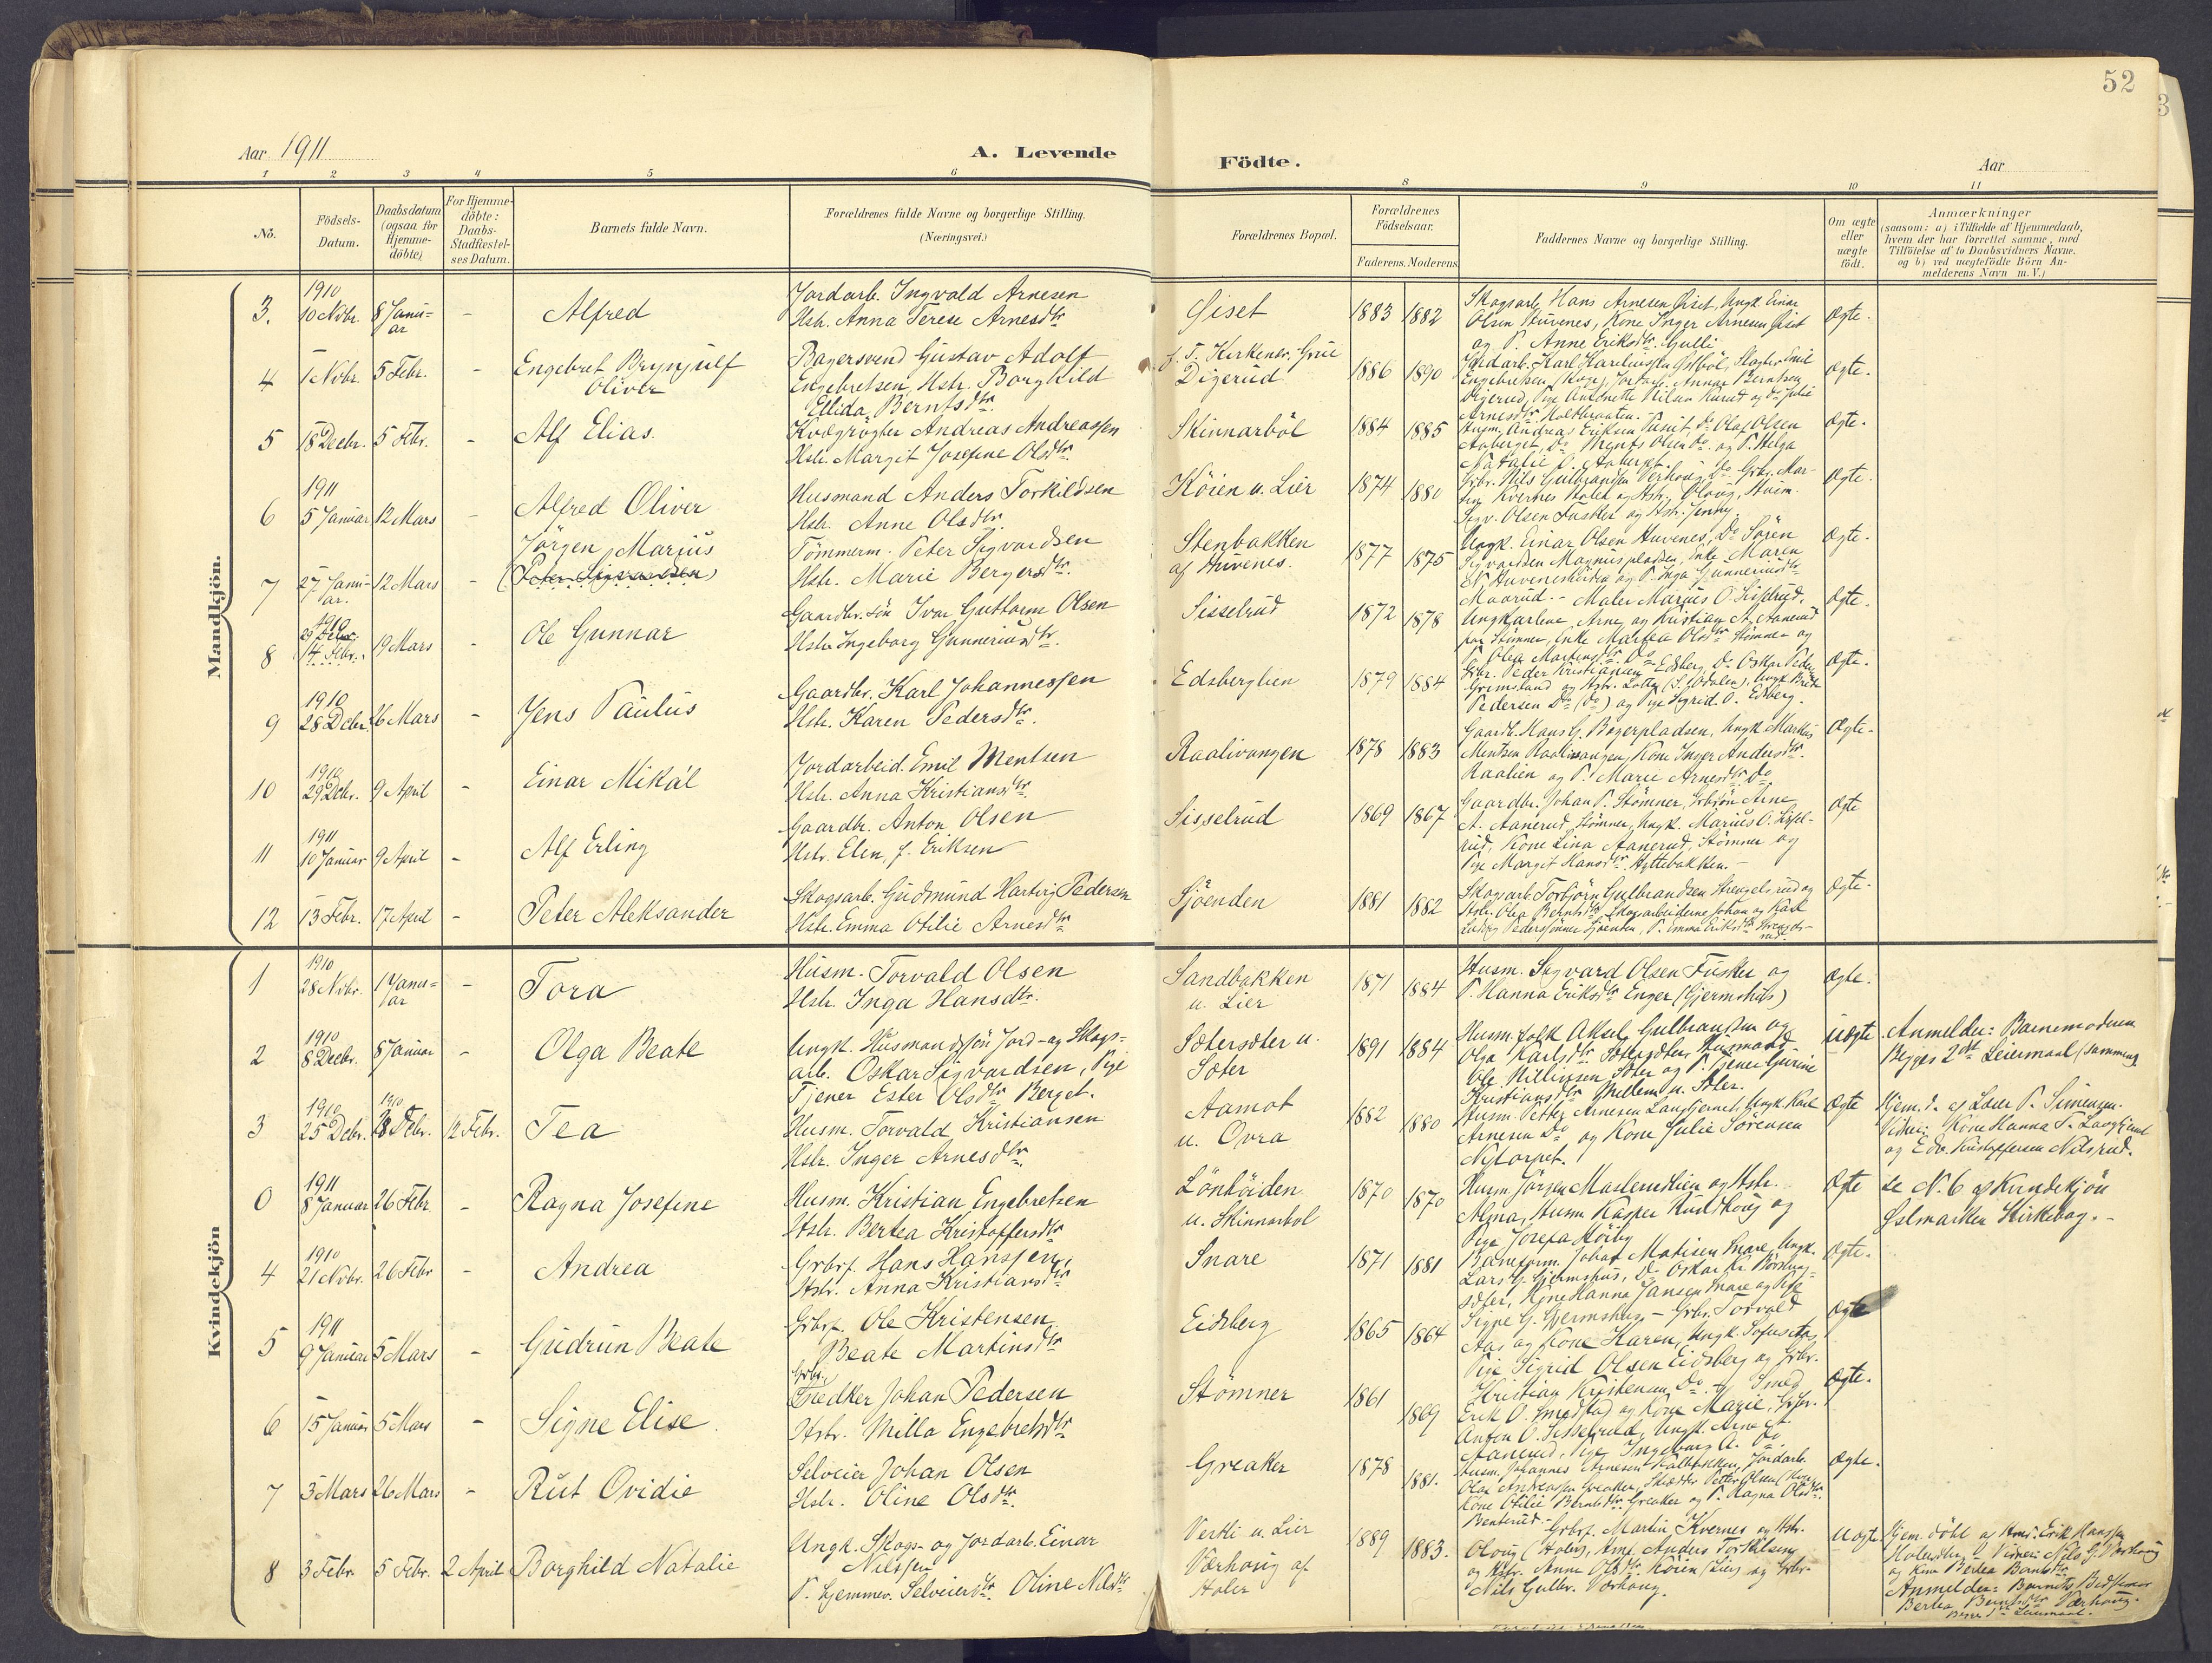 52
Aar 1911
A. Levende
Födte.
Aar
1 2 3 4 5 6 8 9 10 11
No.
Födsels-
Datum.
Daabsdatum
(ogsaa for
Hjemme-
döbte)
For Hjemme-
döbte:
Daabs-
Stadfæstel-
ses Datum.
Barnets fulde Navn.
Forældrenes fulde Navne og borgerlige Stilling.
(Næringsvei.)
Forældrenes Bopæl.
Forældrenes
Födselsaar.
Faderens. Moderens
Faddernes Navne og borgerlige Stilling.
Om ægte
eller
uægte
födt.
Anmærkninger
(saasom: a) i Tilfælde af Hjemmedaab,
hvem der har forrettet samme, med
Tilföielse af to Daabsvidners Navne.
og b) ved uægtefödte Börn An-
melderens Navn m. V.)
Mandkjön.
3. 1910 10 Novbr. 8 Janu-
ar
-
Alfred
Jordarb. Ingvald Arnesen
Hstr. Anna Terese Arnesdtr
Öiset
1883 1882
Skogsarb. Hans Arnesen Öiset, Ungk. Einar
Olsen Huvenes, Kone Inger Arnesen Öiset
og P. Anne Eriksdtr Gulli
Ægte.
4 1 Novbr. 5 Febr. -
Engebret Brynjulf
Oliver
Bagersvend Gustav Adolf
Engebretsen, Hstr. Borghild
Ellida Berntsdtr.
f. T. Kirkener, Grue
Digerud
1886 1890
Engebretsen
Arnesdtr
Ægte.
5 18 Decbr. 5 Febr. -
Alf Elias.
Kvægrögter Andreas Andreassen
Hstr. Margit Josefine Olsdtr.
Skinnarböl
1884 1885
Husm. Andreas Eriksen Do Olaf Olsen
Aaberget, Do Olsen Do og P. Helga
Natalie O. Aaberget.
Ægte.
6 1911 5 Januar 12 Mars -
Alfred Oliver
Husmand Anders Torkildsen
Hstr. Anne Olsdtr.
Köien u. Lier
1874 1880
Grbr. Nils Gulbrandsen Verhoug, Do Grbr. Mar-
tin Kvernes Holer og Hstr. Oloug, Husm.
Sigv. Olsen Fusker og Hstr. Jenny.
Ægte.
7 27 Janu-
ar. 12 Mars -
Jörgen Marius
(Peter Sigvardsen)
Tömmerm. Peter Sigvardsen
Hstr. Marie Bergersdtr.
Stenbakken
af Huvenes.
1877 1875
Ungk. Einar Olsen Huvenes, Do Sören
Sigvardsen Magnuspladsen, Enke Maren
N. Huveneshöiden og P. Inga Gunneriusdtr
Maarud.
Ægte.
8 1910 29 Decbr. 14 Febr. 19 Mars -
Ole Gunnar
Gaardbr. sön Ivar Guttorm Olsen
Hstr. Ingeborg Gunneriusdtr.
Sisselrud
1872 1878
Maler Marius O. Sisselrud,
Ungkarlene Arne og Kristian A. Aanerud
paa Stömner, Enke Martea Olsdtr Stömner og
P. Olea Martinsdtr Do
Ægte.
9 1910 28 Dcbr. 26 Mars -
Jens Paulus
Gaardbr. Karl Johannessen
Hstr. Karen Pedersdtr.
Edsberglien
1879 1884
Grbr. Peder Kristiansen Edsberg, Do Oskar Peders.
Grimsland og Hstr. Lotte (S. Odalen), Ungk.
Pedersen Do (Do) og Pige Sigrid O. Edsberg.
Ægte.
10 1910 29 Dcbr. 9 April -
Einar Mikal
Jordarbeid. Emil Mentsen
Hstr. Anna Kristiansdtr.
Raalivangen
1878 1883
Gaardb. Hans G. Bagerpladsen, Ungk. Markus
Mentsen Raalivangen, Kone Inger Andersdtr.
Raalien og P. Marie Arnesdtr. Do
Ægte.
11 1911 10 Januar 9 April -
Alf Erling
Gaardbr. Anton Olsen
Hstr. Elen, f. Eriksen
Sisselrud
1869 1867
Gaardbr. Johan P. Stömner, Grbrsön Arne
A. Aanerud, Stömner, Ungk. Marius O. Sissel-
rud, Kone Lina Aanerud, Stömner og
Pige Margit Hansdtr. Hyttebakken.
Ægte
12 13 Febr. 17 April -
Peter Aleksander
Skogsarb. Gudmund Hartvig Pedersen
Hstr. Emma Otilie Arnesdtr
Sjöenden
1881 1882
Skogsarb. Torbjörn Gulbrandsen Strengelsrud og
Hstr. Olea Berntsdtr, Skogsarbeiderne Johan og Karl
Ludvig Pederssönner Sjöenden, P. Emma Eriksdtr Strengels-
rud.
Ægte.
Kvindekjön
1 1910 28 Novbr. 1 Janu-
ar -
Tora
Husm. Torvald Olsen
Hstr. Inga Hansdtr.
Sandbakken
u. Lier
1871 1884
Husm. Sigvard Olsen Fusker og
P. Hanna Eriksdtr Enger (Gjermshus)
Ægte.
2 1910 8 Decbr. 8 Januar -
Olga Beate
Ungk. Husmandssön Jord- og Skogs-
arb. Oskar Sigvardsen, Pige
Tjener Ester Olsdtr Berget.
Sætersæter u.
Sæter
1891 1884
Husm. folk Aksel Gulbrandsen og
Olga Karlsdtr Sætersæter, Husmand
Ole Willissen Sæter og P. Tjener Gurine
Kristiansdtr Millem u. Sæter.
Uægte
Anmelder: Barnemoderen
Begges 2det Leiermaal (sammen)
3 1910 25 Dcbr. 1910 28 Dcbr. 12 Febr.
Tea
Husm. Torvald Kristiansen
Hstr. Inger Arnesdtr.
Aamot
u. Overa
1882 1880
Husm. Petter Arnesen Langtjernet, Ungk. Karl
Arnesen Do og Kone Julie Sörensen
Nytorpet.
Ægte
Hjem.d. af Lærer P. Simensen.
Vidner: Kone Hanna T. Langtjernet
og Edv. Kristoffersen Nilsrud.
0 1911 8 Januar 26 Febr. -
Ragna Josefine
Husm. Kristian Engebretsen
Hstr. Bertea Kristoffersdtr
Lönhöiden
u. Skinnarbol
1870 1870
Husm. Jörgen Maslerudlien og Hstr.
Alma, Husm. Kasper Rundhoug og
Pige Josefa
Ægte
se N. 6 af Kvindekjön
Östmarken Kirkebog.
4 1910 21 Novbr. 26 Febr -
Andrea
Grbrf. Hans Hanssen,
Hstr. Anna Kristiansdtr
Snare
1871 1881
Johan Matisen Snare, Ungk.
Lars G. Gjermshus, Do Oskar Kr.
sæter, Kone Hanna Jansen Snare og Pige
Signe G. Gjermshus.
Ægte.
5 1911 9 Januar 5 Mars -
Gudrun Beate
Grbrf. Ole Kristensen
Beate Martinsdtr
Eidsberg
1865 1864
Grbr. Torvald
Aas og Kone Karen, Ungk. Sofus Aas,
Pige Sigrid Olsen Eidsberg og Grbr.
Kristian Kristensen Do.
Ægte
6 15 Januar 5 Mars -
Signe Elise.
Grbr.
Snedker Johan Pedersen
Hstr. Milla Engebretsdtr
Stömner
1861 1869
Smed
Erik O. Smedstad og Kone Marie, Grbr.
Anton O. Sisselrud, Ungk. Arne A.
Aanerud, Pige Ingeborg A. Do.
Ægte.
7 3 Mars 26 Mars -
Rut Ovidie
Selveier Johan Olsen
Hstr. Oline Olsdtr.
Greaker
1878 1881.
Husm. Johannes Arnesen Kalbakken, Jordarb.
Olaf Andreassen Greaker, Skrædder Petter Olsen
Kone Otilie Berntsdtr. Greaker og P. Magna Olsdtr.
Benterud.
Ægte.
8 3 Febr. 5 Febr. 2 April
Borghild Natalie
Ungk. Skogs- og Jordarb. Einar
Nilssen
P. hjemmev. Selveierdtr. Oline Nilsdtr
Vertli u. Lier
Værhoug af
Holer
1889 1883.
Grbrf. Martin Kvernes og Hstr.
Oloug (Holer), Hmf. Anders Torkilsen
og Hstr. Anne Olsdtr. Köien (Lier) og Grbr.
Nils Gulbr. Værhoug.
Uægte
Hjem. döbt af Hmd. Erik Hanssen
Vidner: Nils G. Værhoug
og Kone Bertea Berntsdtr.
Anmelder: Barnets Bedstemor
Bertea Berntsdtr Værhoug.
Leiermaal.